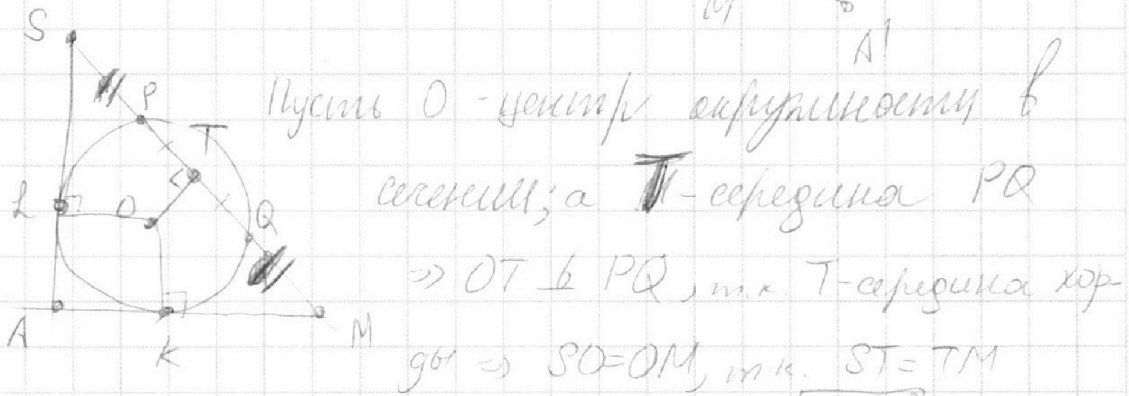 A'
S
P
Пусть O - центр окружности в
T
сечении; а T - середина PQ
L
O
Q
=> OT ⊥ PQ, т.к. T - середина хор-
A
K
M
ды => SO=OM, т.к. ST=TM